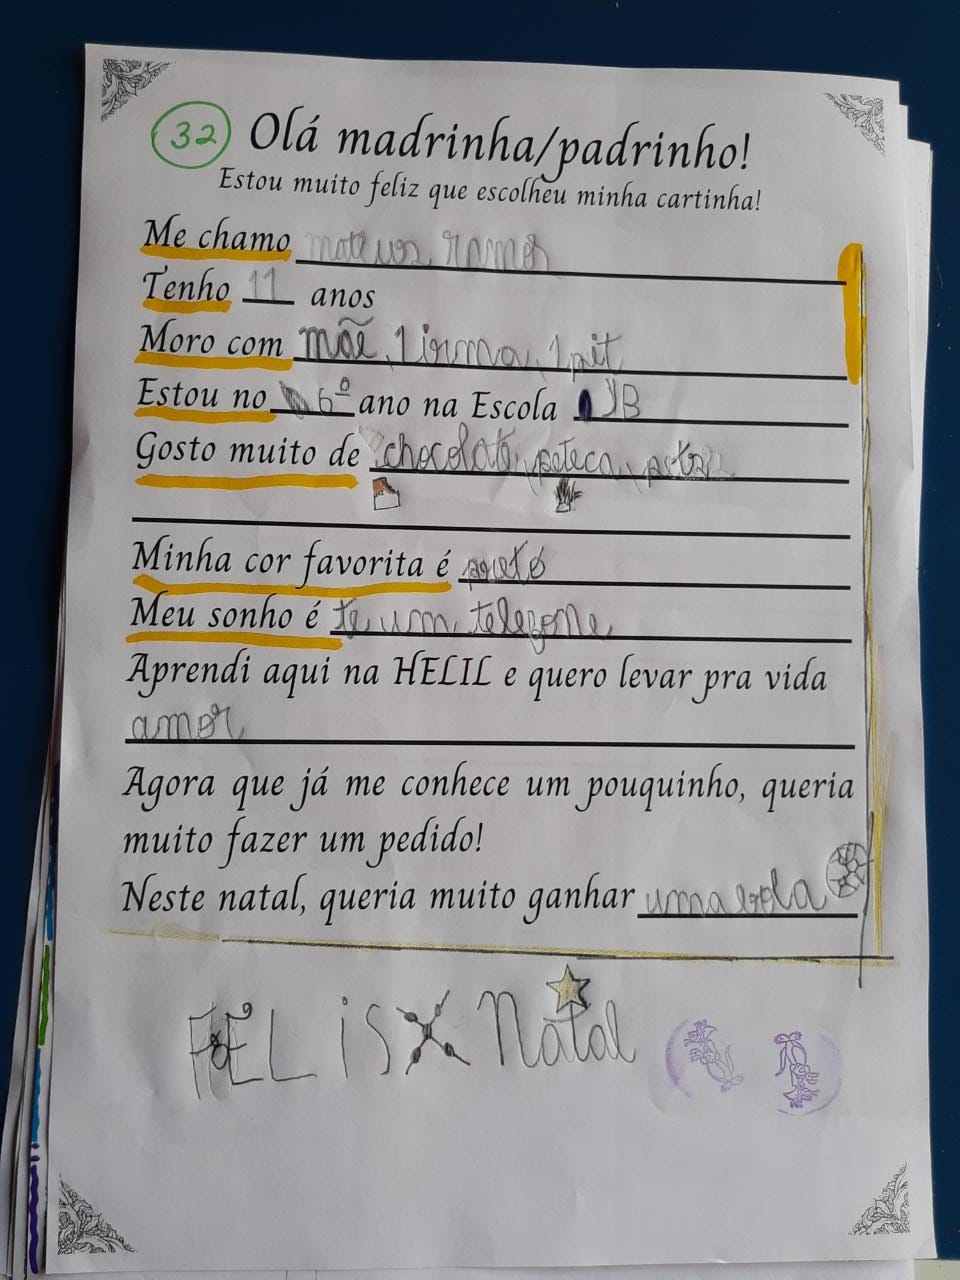 32 Olá madrinha/padrinho!
Estou muito feliz que escolheu minha cartinha!
Me chamo mateus ramos
Tenho 11 anos
Moro com mãe, 1 irma, 1 pit
Estou no 6º ano na Escola JB
Gosto muito de chocolate, peteca,
Minha cor favorita é preto
Meu sonho é te um telefone
Aprendi aqui na HELIL e quero levar pra vida
amor
Agora que já me conhece um pouquinho, queria
muito fazer um pedido!
Neste natal, queria muito ganhar uma bola
FELIS Natal